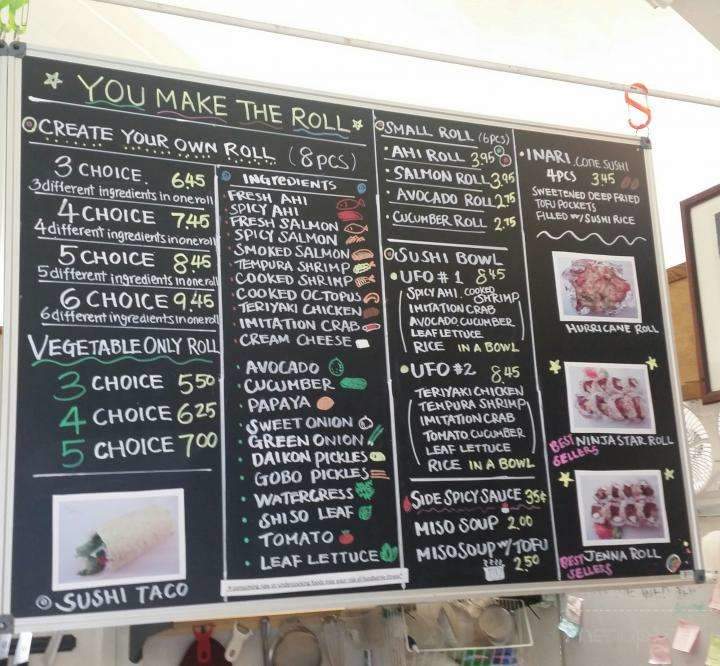 YOU MAKE THE ROLL
CREATE YOUR OWN ROLL (8PCS)
3 CHOICE. 6.45
3 different ingredients in one roll
4 CHOICE 7.45
4 different ingredients in one roll
5 CHOICE 8.45
5 different ingredients in one roll
6 CHOICE 9.45
6 different ingredients in one roll
VEGETABLE ONLY ROLL
3 CHOICE 5.50
4 CHOICE 6.25
5 CHOICE 7.00
SUSHI TACO
INGREDIENTS
FRESH AHI
SPICY AHI
FRESH SALMON
SPICY SALMON
SMOKED SALMON
TEMPURA SHRIMP
COOKED SHRIMP
COOKED OCTOPUS
TERIYAKI CHICKEN
IMITATION CRAB
CREAM CHEESE
• AVOCADO
• CUCUMBER
• PAPAYA
• SWEET ONION
• GREEN ONION
• DAIKON PICKLES
• GOBO PICKLES
• WATERCRESS
• SHISO LEAF
• TOMATO
• LEAF LETTUCE
SMALL ROLL (6PCS)
• AHI ROLL 3.95
• SALMON ROLL 3.95
• AVOCADO ROLL 2.75
• CUCUMBER ROLL 2.75
SUSHI BOWL
• UFO #1 8.45
SPICY AHI. COOKED SHRIMP
IMITATION CRAB
AVOCADO. CUCUMBER
LEAF LETTUCE
RICE IN A BOWL
• UFO #2 8.45
TERIYAKI CHICKEN
TEMPURA SHRIMP
IMITATION CRAB
TOMATO CUCUMBER
LEAF LETTUCE
RICE IN A BOWL
SIDE SPICY SAUCE 35¢
MISO SOUP 2.00
MISO SOUP W/ TOFU
2.50
• INARI. CONE SUSHI
4PCS 3.45
SWEETENED DEEP FRIED
TOFU POCKETS
FILLED W/ SUSHI RICE
HURRICANE ROLL
BEST SELLERS NINJA STAR ROLL
BEST SELLERS JENNA ROLL